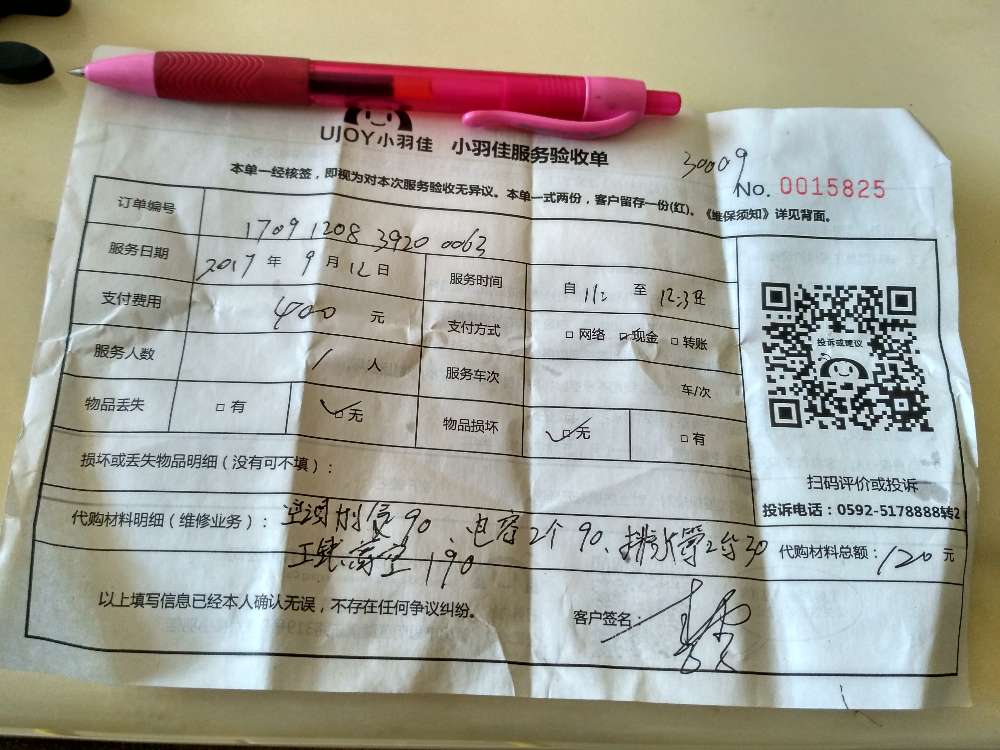 UJOY小羽佳 小羽佳服务验收单
30009
No. 0015825
本单一经核签，即视为对本次服务验收无异议。本单一式两份，客户留存一份(红)。《维保须知》详见背面。
订单编号 1709 1208 3920 0063
服务日期 2017 年 9 月 12 日 服务时间 自 11: 至 12:3
支付费用 400 元 支付方式 □ 网络 □ 现金 □ 转账
服务人数 1 人 服务车次 车/次
物品丢失 □ 有 □ 无 物品损坏 □ 无 □ 有
损坏或丢失物品明细（没有可不填）：
代购材料明细（维修业务）： 90、电容2个 90、排水管2 30 代购材料总额： 120 元
高空 190
以上填写信息已经本人确认无误，不存在任何争议纠纷。 客户签名：
投诉或建议
扫码评价或投诉
投诉电话：0592-5178888转2